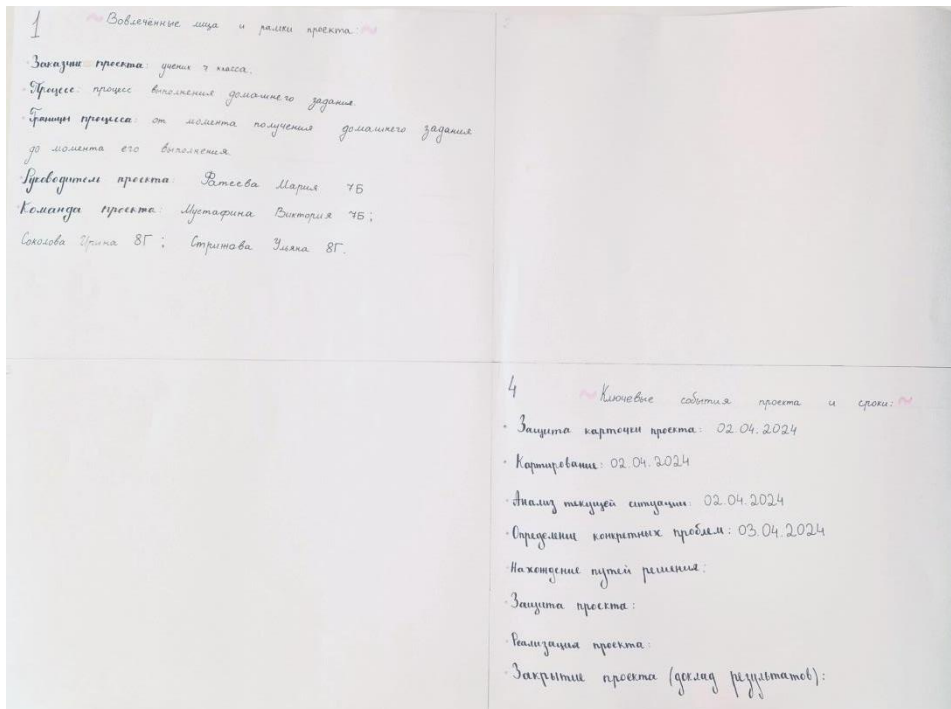 1
~ Вовлечённые лица и рамки проекта: ~
· Заказчик проекта: ученик 7 класса.
· Процесс: процесс выполнения домашнего задания
· Границы процесса: от момента получения домашнего задания
до момента его выполнения.
· Руководитель проекта: Фатеева Мария 7Б
· Команда проекта: Мустафина Виктория 7Б;
Соколова Ирина 8Г; Стрижова Ульяна 8Г.
2
4
~ Ключевые события проекта и сроки: ~
· Защита карточки проекта: 02.04.2024
· Картирование: 02.04.2024
· Анализ текущей ситуации: 02.04.2024
· Определение конкретных проблем: 03.04.2024
· Нахождение путей решения:
· Защита проекта:
· Реализация проекта:
· Закрытие проекта (доклад результатов):